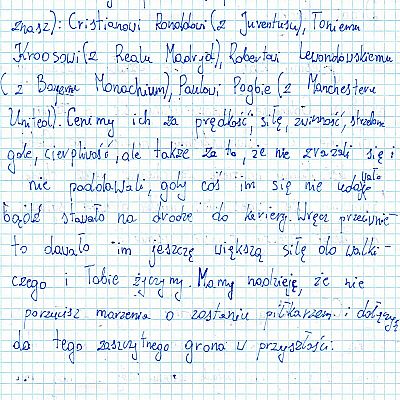 znasz): Cristianowi Ronaldowi (z Juventusu), Toniemu
Kroosowi (z Realu Madryd), Robertowi Lewondowskiemu
(z Bayernu Monachium), Paulowi Pogbie (z Manchesteru
United). Cenimy ich za prędkość, siłę, zwinność, strzelone
gole, cierpliwość, ale także za to, że nie zrażali się i
nie poddawali, gdy coś im się nie udawało
bądź stawało na drodze do kariery. Wręcz przeciwnie
to dawało im jeszczę większą siłę do walki -
czego i Tobie życzymy. Mamy nadzieję, że nie
porzucisz marzenia o zostaniu piłkarzem i dołączysz
do tego zaszczytnego grona w przyszłości.